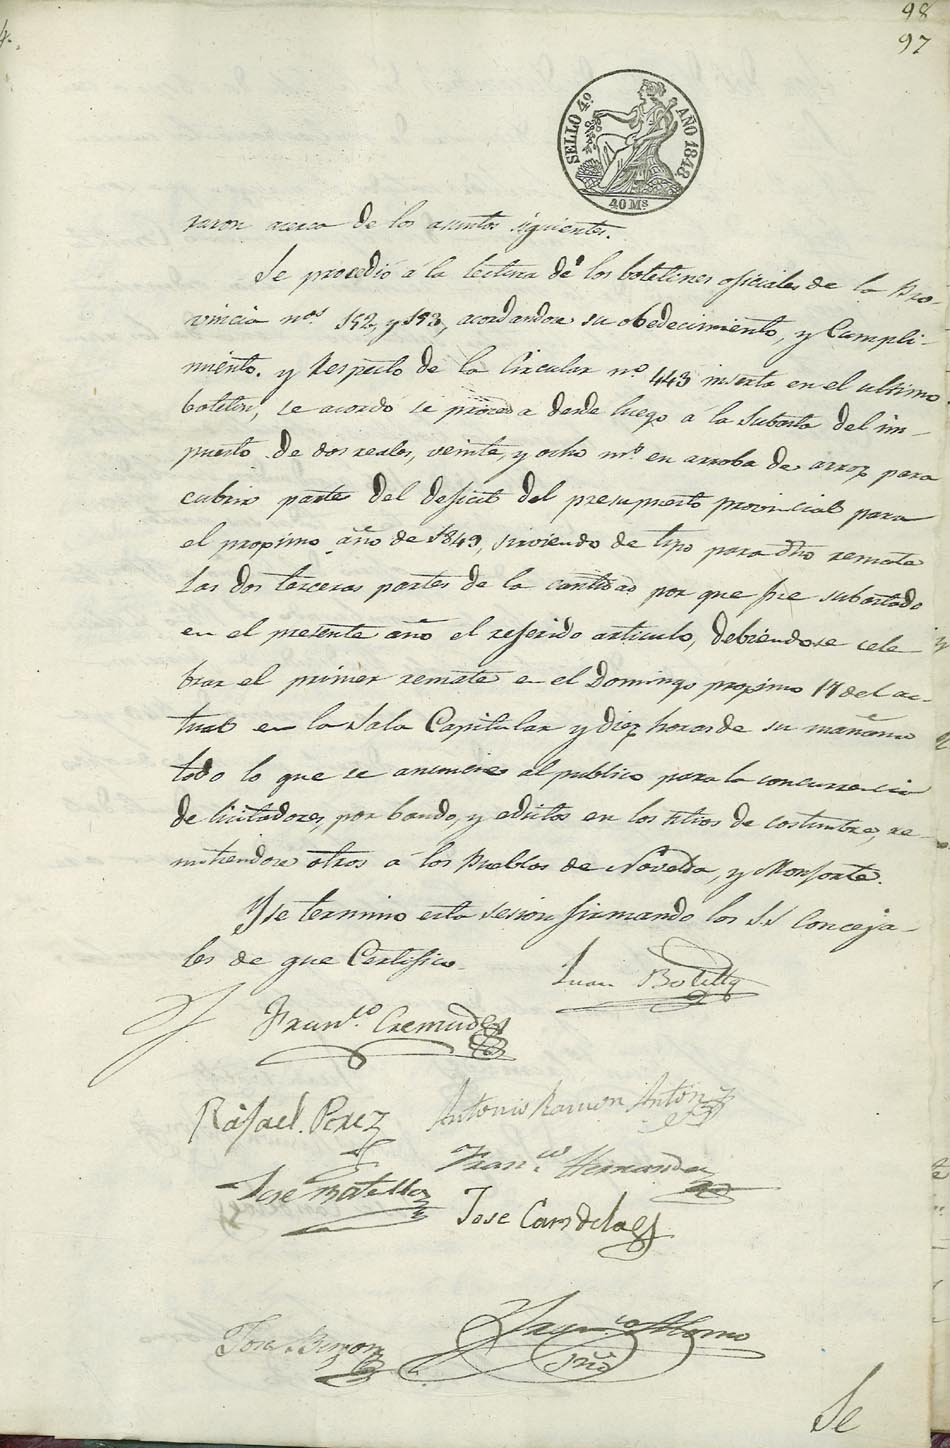 98
97
4.
SELLO 4º AÑO 1848.
40 Ms
raron acerca de los asuntos siguientes.
Se procedió á la lectura de los boletines oficiales de la Pro-
vincia nos 152, y 153, acordandose su obedecimiento, y Cumpli-
miento. y Respecto de la Circular nº 443 inserta en el ultimo
boletin, se acordó se proceda desde luego á la Subasta del im-
puesto de dos reales, veinte, y ocho ms en arroba de arroz para
cubrir parte del deficit del presupuesto provincial para
el proximo año de 1849, sirviendo de tipo para dho remate
las dos terceras partes de la cantidad por que fue subastado
en el presente año el referido articulo, debiendose cele
brar el primer remate en el Domingo proximo 17 del ac-
tual en la Sala Capitular y diez horas de su mañana
todo lo que se anuncie al publico para la concurrencia
de licitadores, por bando, y edictos en los sitios de costumbre, re-
mitiendose otros á los Pueblos de Novelda, y Monforte.
Y se termino esta sesion firmando los S.S Conceja-
les de que Certifico.
Juan Botella
Franco. Cremades
Rafael. Perez
Antonio Ramon Anton
Franco. Hernandez
Jose Botella
Jose Candela
Jose
srio
Se